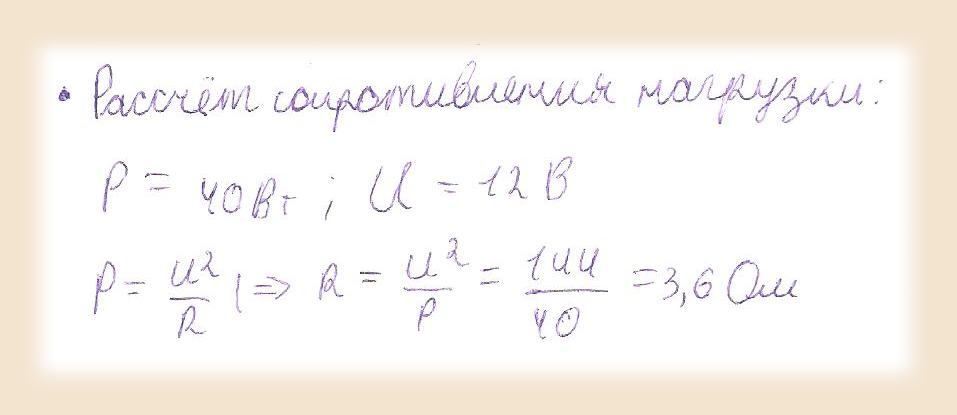 • Рассчёт сопротивления нагрузки:
P = 40Вт ; U = 12 В
P = U²/R | => R = U²/P = 144/40 = 3,6 Ом